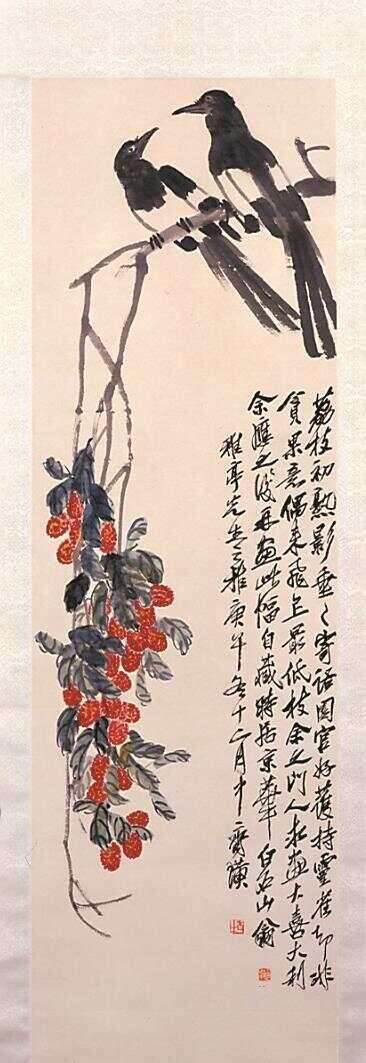 荔枝初熟影垂々寄語園官好護持靈雀却非
貪果意偶來飛上最低枝余之門人求畫大喜大利
余應之後再畫此幅自藏時居京華 白石山翁
雅亭先生之雅庚午冬十二月中 齊璜